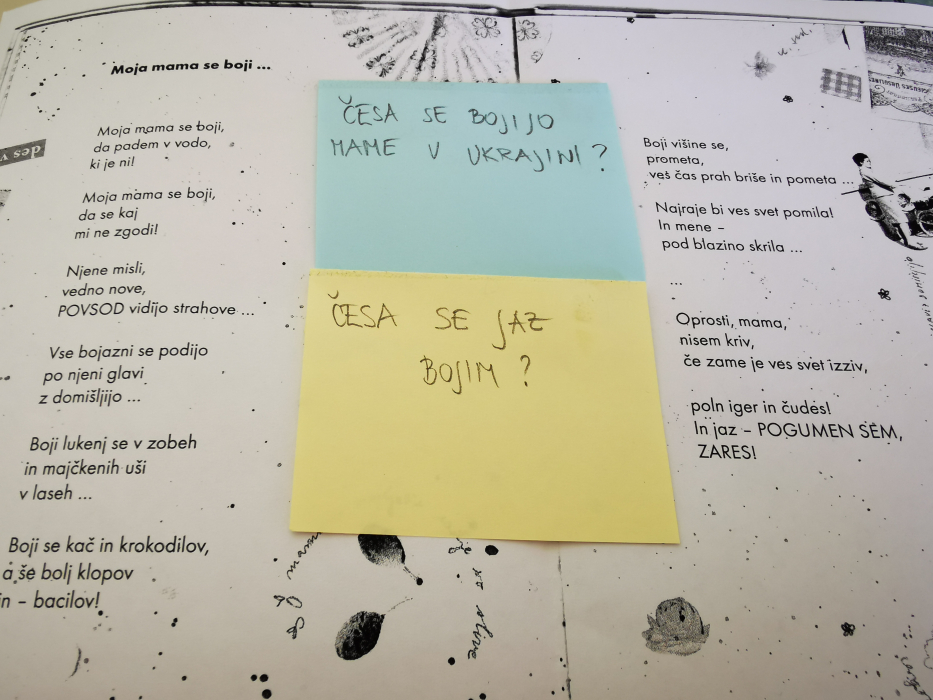 Moja mama se boji ...
Moja mama se boji,
da padem v vodo,
ki je ni!
Moja mama se boji,
da se kaj
mi ne zgodi!
Njene misli,
vedno nove,
POVSOD vidijo strahove ...
Vse bojazni se podijo
po njeni glavi
z domišljijo ...
Boji lukenj se v zobeh
in majčkenih uši
v laseh ...
Boji se kač in krokodilov,
a še bolj klopov
in – bacilov!
ČESA SE BOJIJO
MAME V UKRAJINI?
ČESA SE JAZ
BOJIM?
Boji višine se,
prometa,
ves čas prah briše in pometa ...
Najraje bi ves svet pomila!
In mene –
pod blazino skrila ...
...
Oprosti, mama,
nisem kriv,
če zame je ves svet izziv,
poln iger in čudes!
In jaz – POGUMEN SEM,
ZARES!
des v